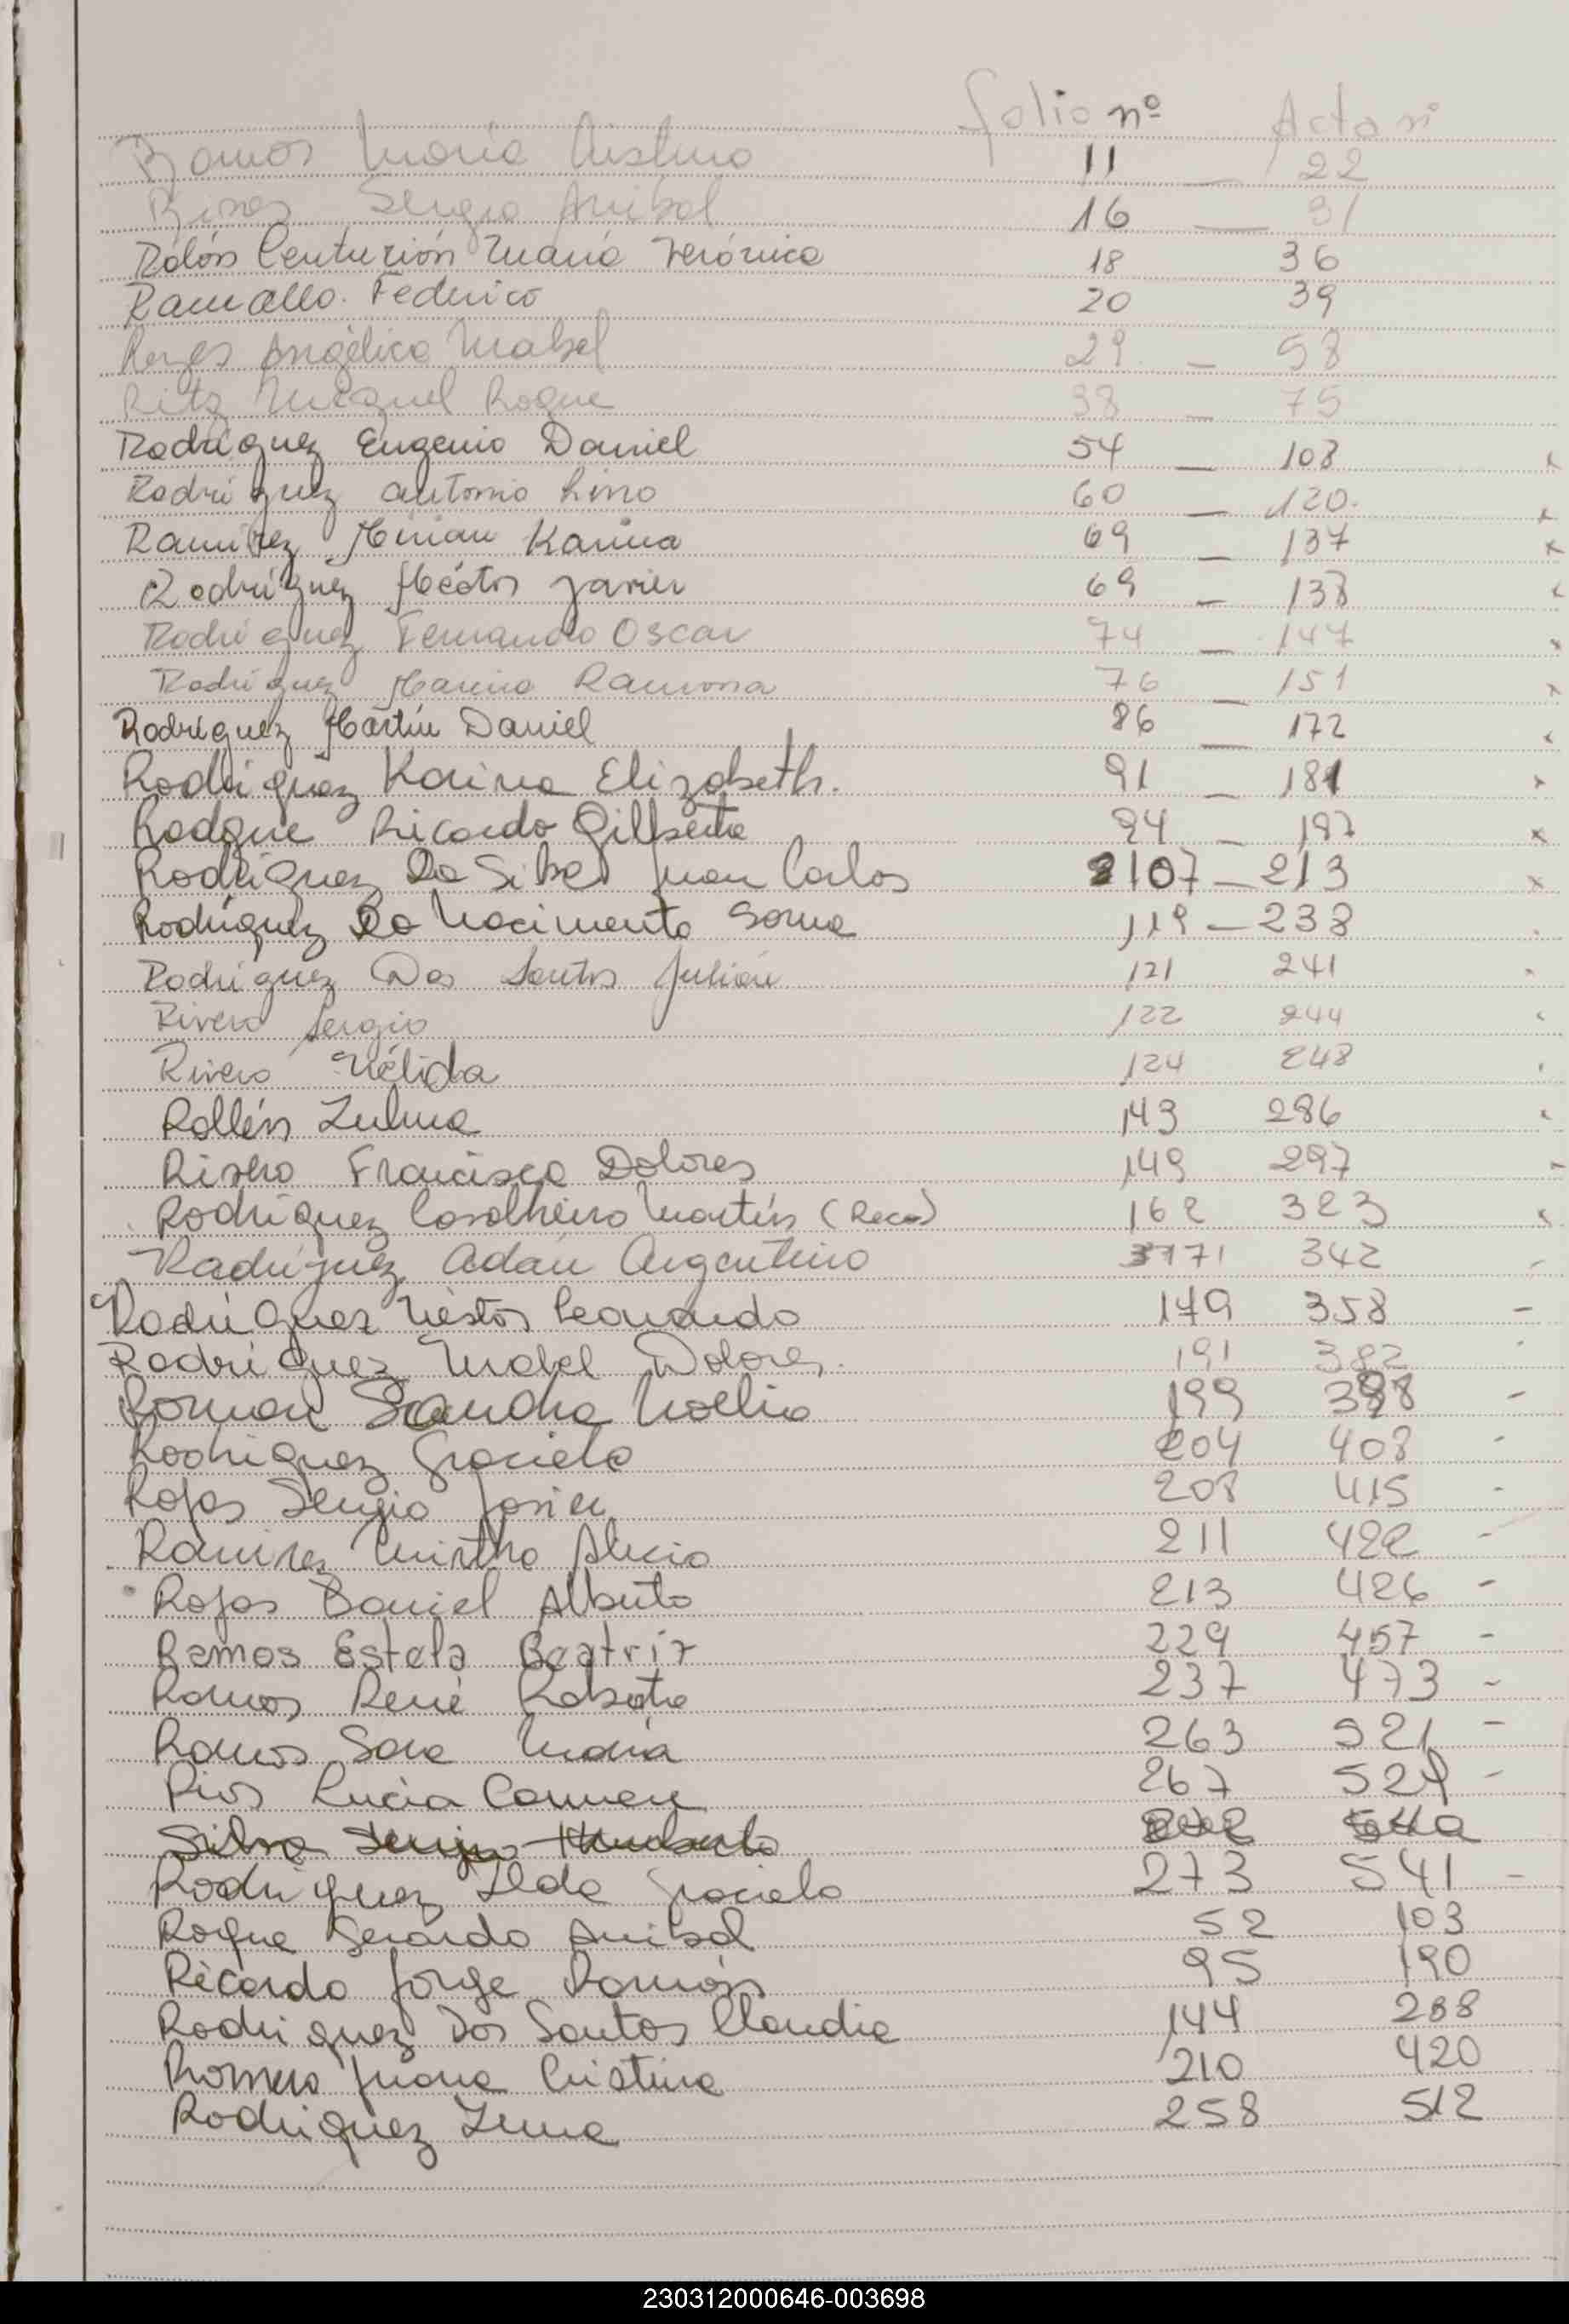 Folio nº Acta nº
Ramos María Cristina 11 — 22
Rivas Sergio Anibal 16 — 31
Rolón Centurión María Verónica 18 36
Ramallo Federico 20 39
Reyes Angélica Mabel 29 — 58
Ritz Miguel Roque 38 — 75
Rodríguez Eugenio Daniel 54 — 108 x
Rodríguez Antonio Lino 60 — 120. x
Ramírez Mirian Karina 69 — 137 x
Rodríguez Héctor Javier 69 — 138 x
Rodríguez Fernando Oscar 74 — 147 x
Rodríguez Marina Ramona 76 — 151 x
Rodríguez Martín Daniel 86 — 172 x
Rodríguez Karina Elizabeth. 91 — 181 x
Rodque Ricardo Gilberto 94 — 187 x
Rodríguez Da Silva Juan Carlos 107 — 213 x
Rodríguez Do Nacimento Sonia 119 — 238
Rodríguez Dos Santos Julián 121 241
Rivero Sergio 122 244
Rivero Nélida 124 248
Rollén Zulma 143 286
Rivero Francisca Dolores 149 297
Rodríguez Casalheiro Martín (Reco) 162 323
Rodríguez Adán Argentino 171 342
Rodríguez Néstor Leonardo 179 358 -
Rodríguez Mabel Dolores. 191 382
Roman Sandra Noelia 199 398 -
Rodríguez Graciela 204 408 -
Rojas Sergio Javier 208 415 -
Ramirez Mirtha Alicia 211 422 -
Rojas Daniel Alberto 213 426 -
Ramos Estela Beatriz 229 457 -
Ramos René Roberto 237 473 -
Ramos Sara María 263 521 -
Rios Lucia Carmen 267 529 -
Silva Sergio Humberto
Rodriguez Ilda Graciela 273 541 -
Roque Gerardo Anibal 52 103
Ricardo Jorge Ramón 95 190
Rodriguez Dos Santos Claudia 144 288
Romero Juana Cristina 210 420
Rodriguez Irma 258 512
230312000646-003698